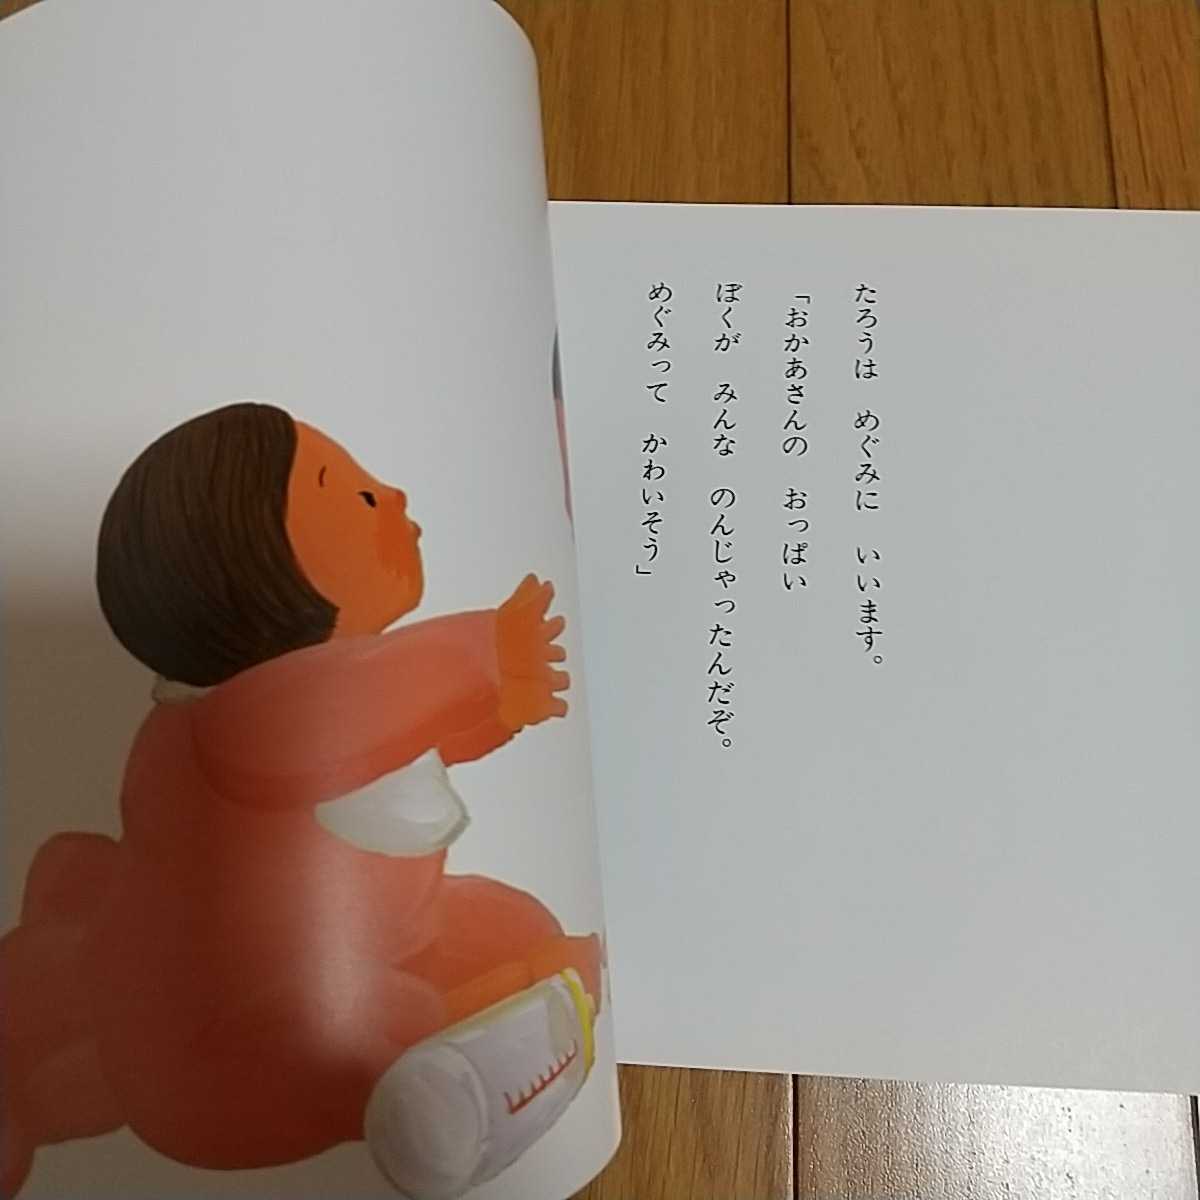 たろうは　めぐみに　いいます。
「おかあさんの　おっぱい
ぼくが　みんな　のんじゃったんだぞ。
めぐみって　かわいそう」